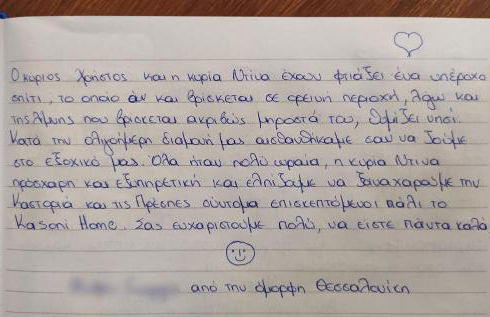 Ο κύριος Χρήστος και η κυρία Ντίνα έχουν φτιάξει ένα υπέροχο
σπίτι, το οποίο αν και βρίσκεται σε ορεινή περιοχή, λόγω και
της λίμνης που βρίσκεται ακριβώς μπροστά του, θυμίζει νησί.
Κατά την ολιγοήμερη διαμονή μας αισθανθήκαμε σαν να ζούμε
στο εξοχικό μας. Όλα ήταν πολύ ωραία, η κυρία Ντίνα
πρόσχαρη και εξυπηρετική και ελπίζαμε να ξαναχαρούμε την
Καστοριά και τις Πρέσπες σύντομα επισκεπτόμενοι πάλι το
Kasoni Home. Σας ευχαριστούμε πολύ, να είστε πάντα καλά
από την όμορφη Θεσσαλονίκη